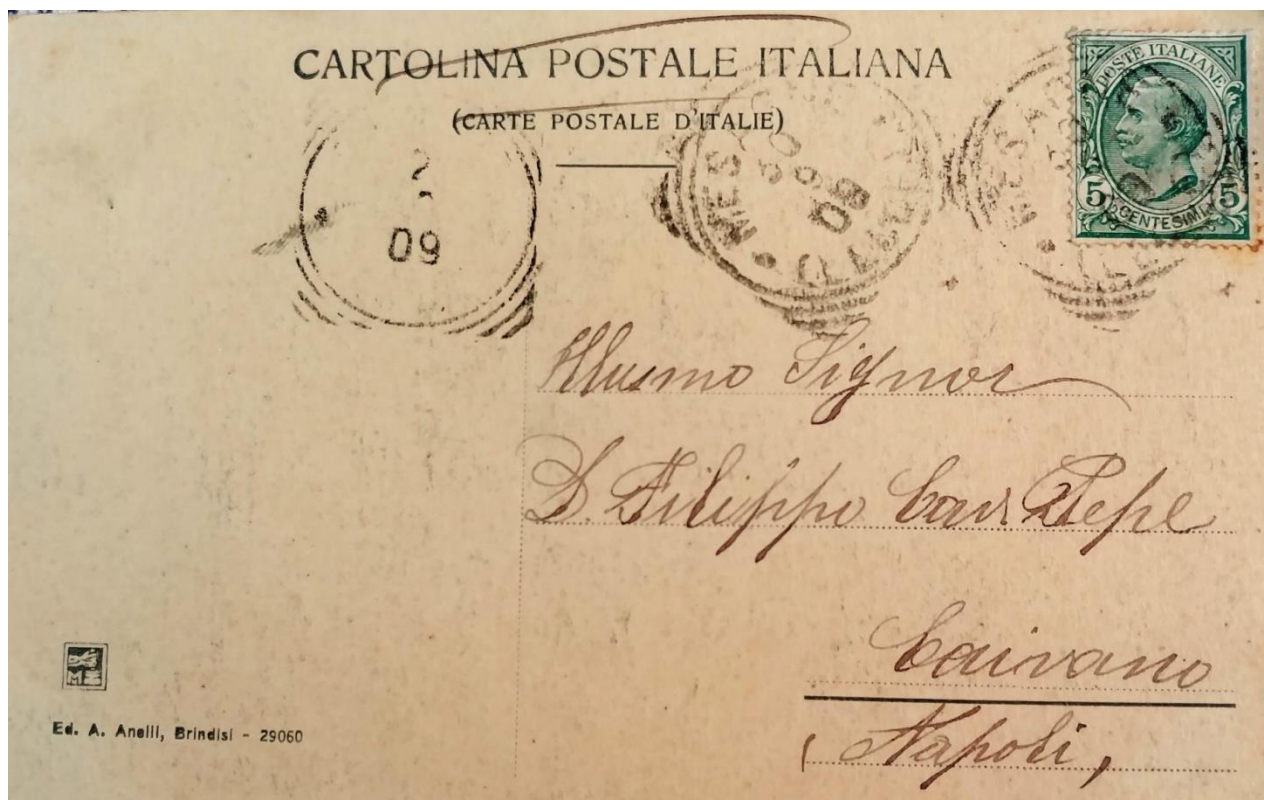 CARTOLINA POSTALE ITALIANA
(CARTE POSTALE D'ITALIE)
POSTE ITALIANE
5 CENTESIMI 5
2
09
MESAGNE
30
09
(LECCE)
Illusmo Signor
D. Filippo Cav. Pepe
Caivano
(Napoli)
ME
Ed. A. Anelli, Brindisi - 29060